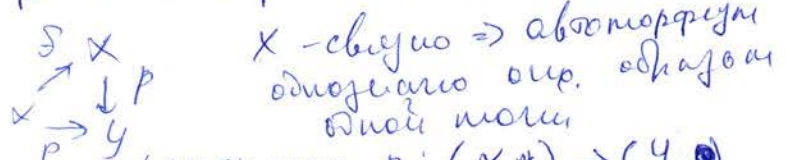 X - связно => автоморфизм
однозначно опр. образом
одной точки
X
p
X
p
Y